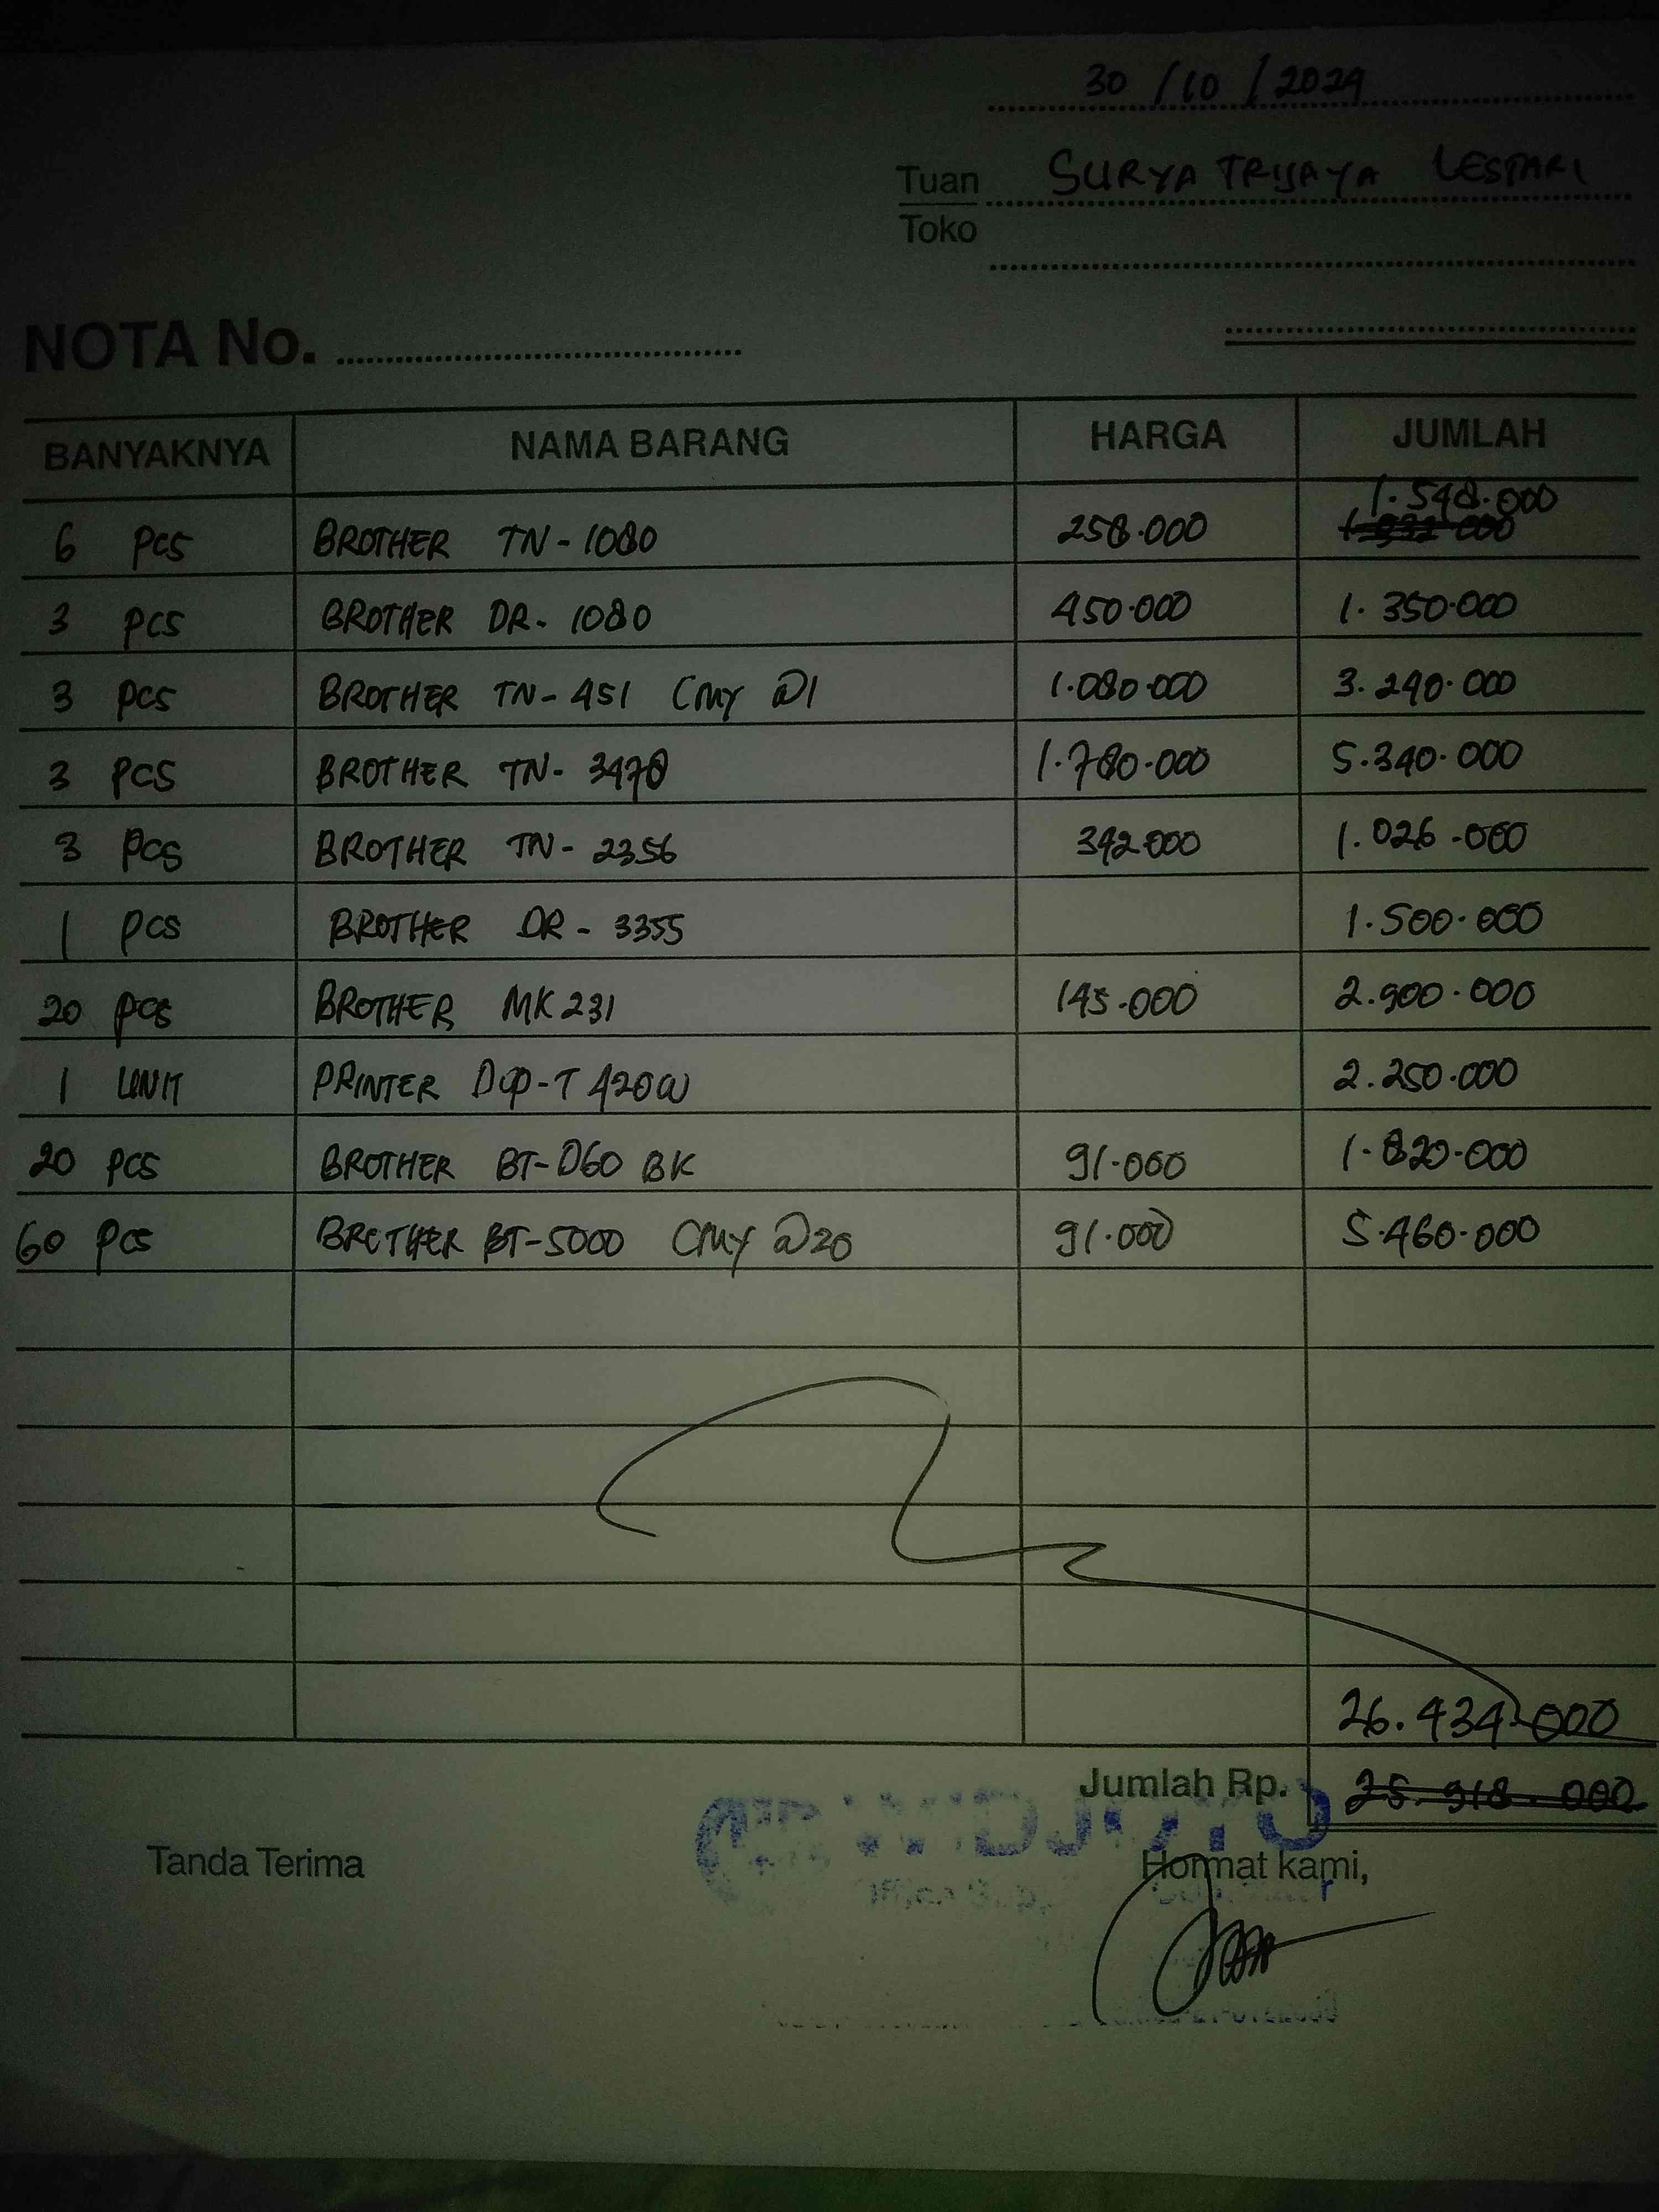 30 / 10 / 2024
Tuan SURYA TRIJAYA LESTARI
Toko
NOTA No.
BANYAKNYA NAMA BARANG HARGA JUMLAH
1.548.000
6 PCS BROTHER TN-1080 258.000 1.032.000
3 PCS BROTHER DR-1080 450.000 1.350.000
3 PCS BROTHER TN-451 CMY @1 1.080.000 3.240.000
3 PCS BROTHER TN-3478 1.780.000 5.340.000
3 PCS BROTHER TN-2356 342.000 1.026.000
1 PCS BROTHER DR-3355 1.500.000
20 PCS BROTHER MK 231 145.000 2.900.000
1 UNIT PRINTER DCP-T 420W 2.250.000
20 PCS BROTHER BT-D60 BK 91.000 1.820.000
60 PCS BROTHER BT-5000 CMY @20 91.000 5.460.000
26.434.000
Jumlah Rp. 25.918.000
Tanda Terima Hormat kami,